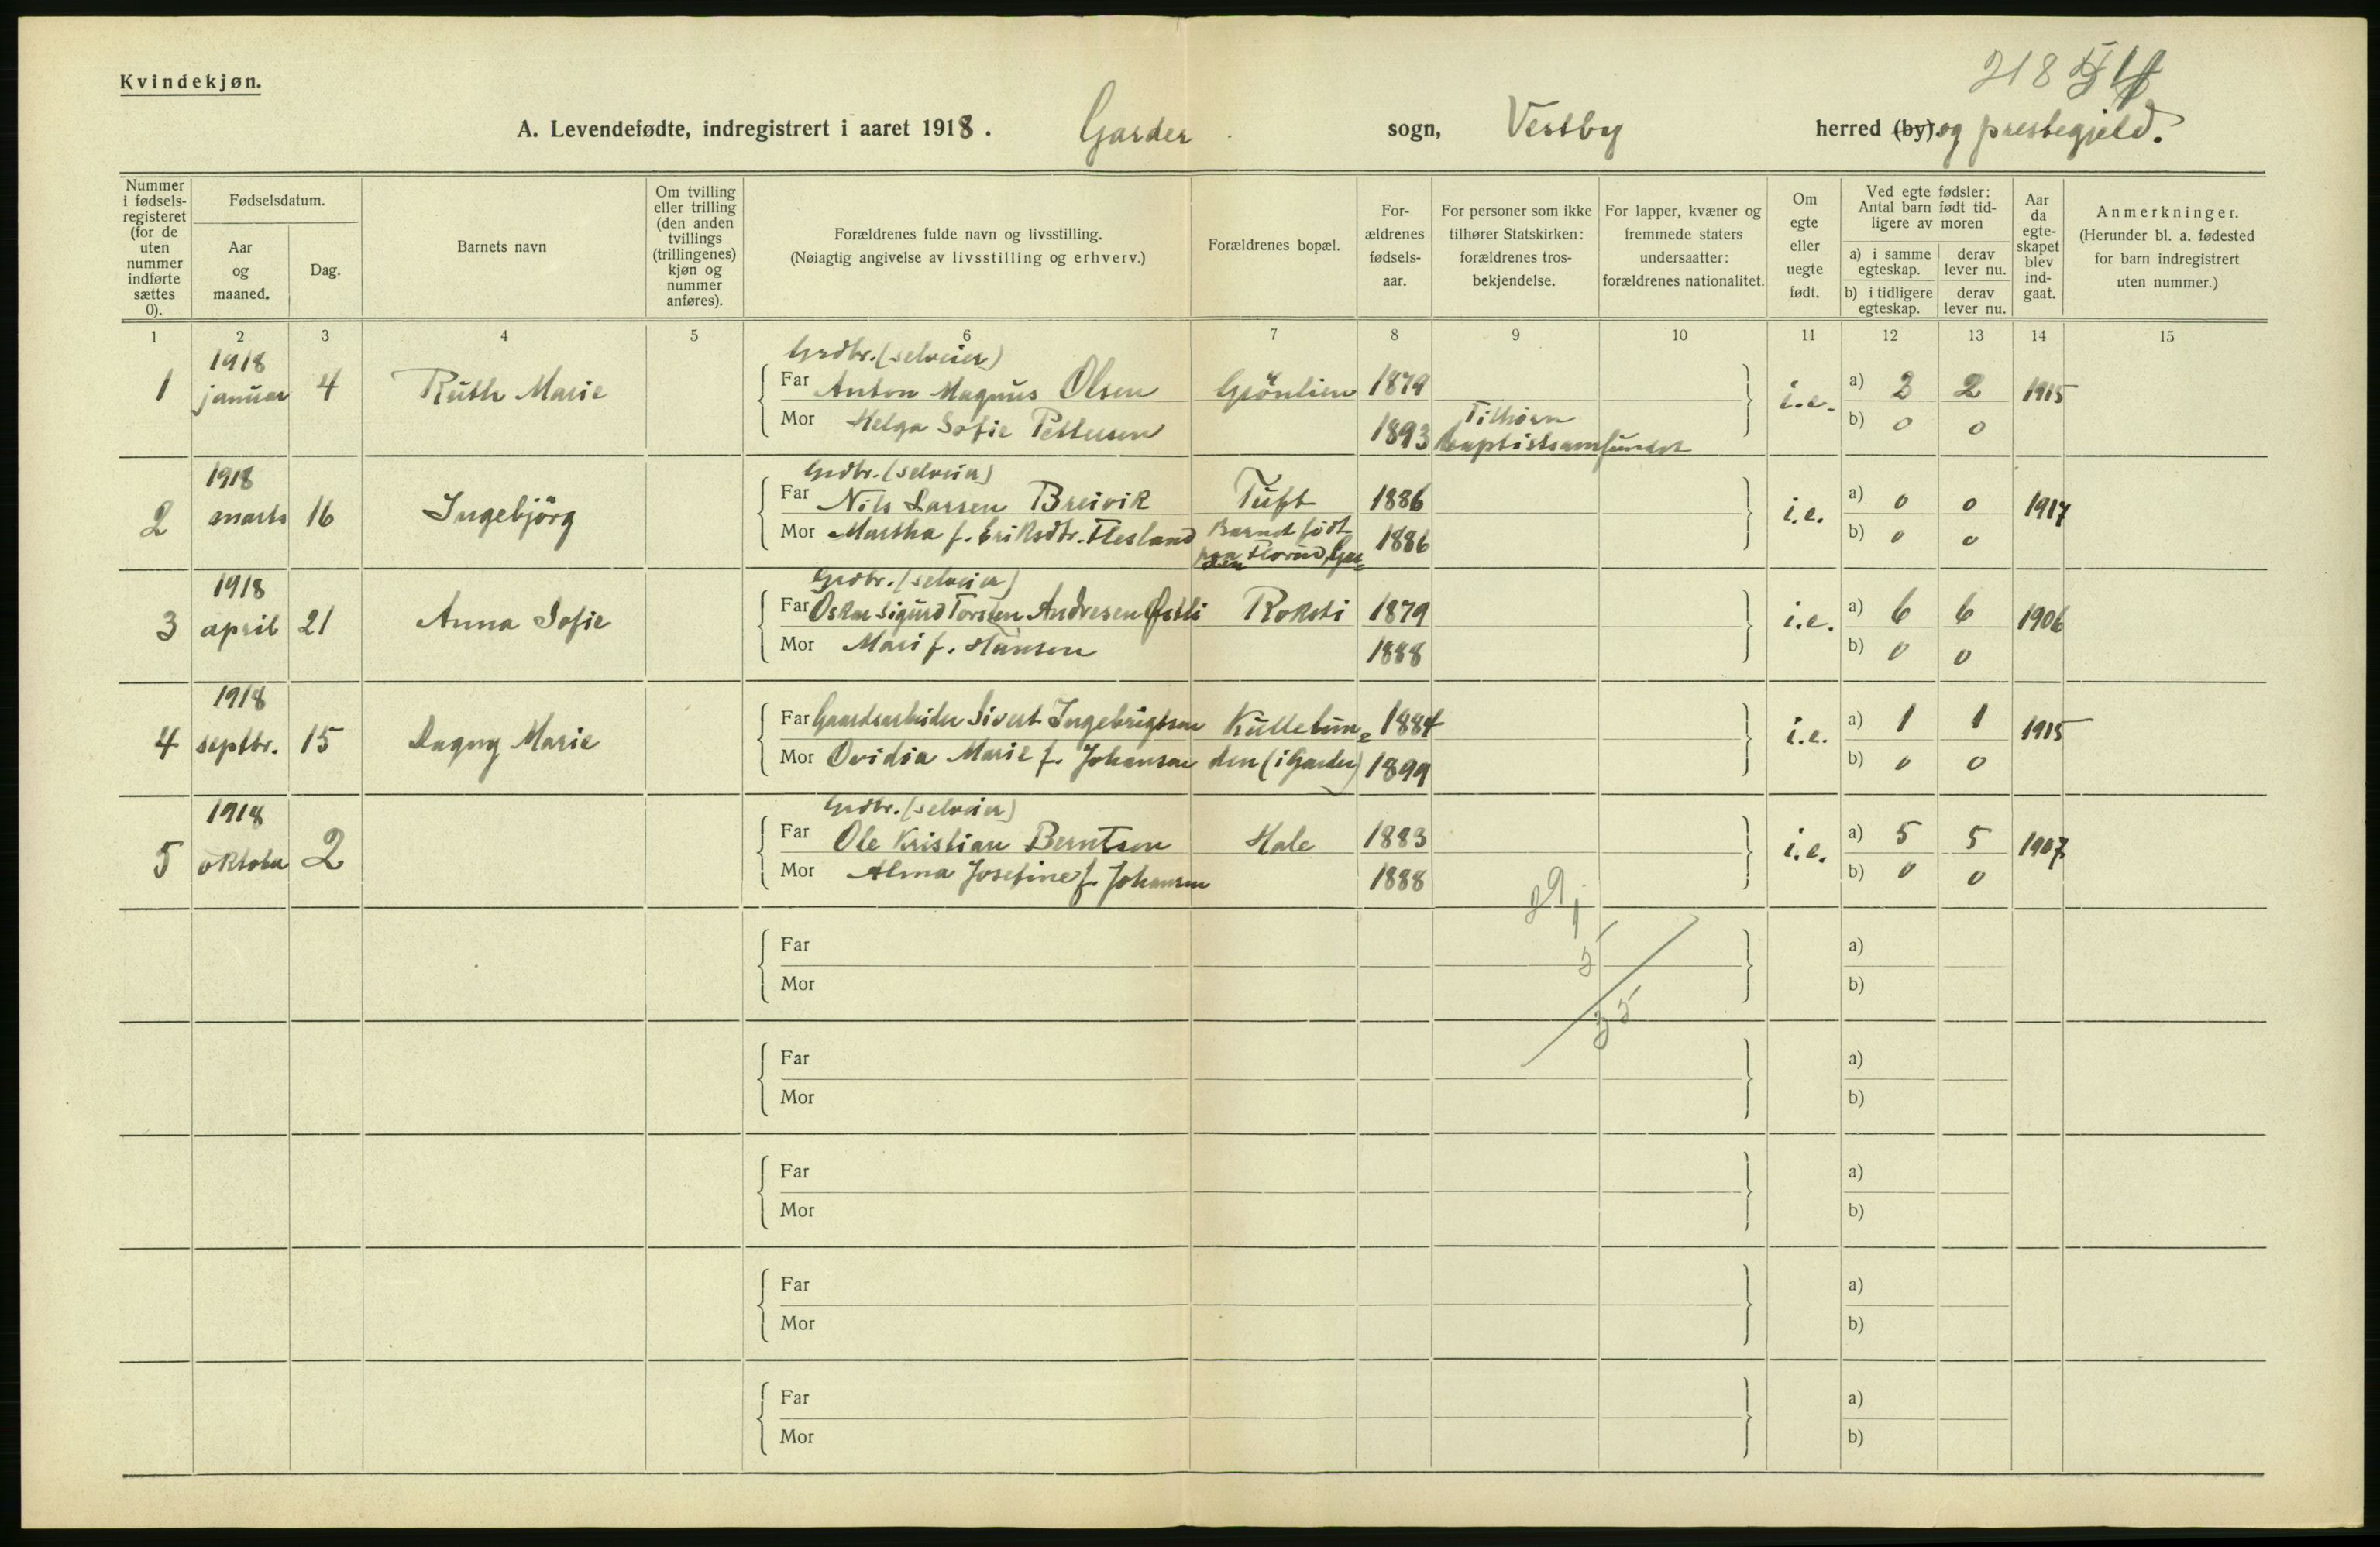 Kvindekjøn.
218
A. Levendefødte, indregistrert i aaret 1918. Garder sogn, Vestby herred (by). og prestegjeld.
Nummer i fødsels-registeret (for de uten nummer indførte sættes 0).
Fødselsdatum.
Aar og maaned.
Dag.
Barnets navn
Om tvilling eller trilling (den anden tvillings (trillingenes) kjøn og nummer anføres).
Forældrenes fulde navn og livsstilling.
(Nøiagtig angivelse av livsstilling og erhverv.)
Forældrenes bopæl.
For-ældrenes fødsels-aar.
For personer som ikke tilhører Statskirken: forældrenes tros-bekjendelse.
For lapper, kvæner og fremmede staters undersaatter: forældrenes nationalitet.
Om egte eller uegte født.
Ved egte fødsler: Antal barn født tid-ligere av moren
a) i samme egteskap.
derav lever nu.
b) i tidligere egteskap.
derav lever nu.
Aar da egte-skapet blev ind-gaat.
Anmerkninger.
(Herunder bl. a. fødested for barn indregistrert uten nummer.)
1 2 3 4 5 6 7 8 9 10 11 12 13 14 15
1918 Grdbr. (selveier)
1 januar 4 Ruth Marie Far Anton Magnus Olsen Grönlien 1879 i.e. a) 2 2 1915
Mor Helga Sofie Pettersen 1893 Tilhører baptistsamfundet b) 0 0
1918 Grdbr. (selveier)
2 marts 16 Ingebjörg Far Nils Larsen Breivik Tuft 1886 i.e. a) 0 0 1917
Mor Martha f. Eriksdtr. Flesland Barnet födt paa 1886 b) 0 0
1918 Grdbr. (selveier)
3 april 21 Anna Sofie Far Oskar Sigurd Torsten Andresen Østli Roksti 1879 i.e. a) 6 6 1906
Mor Mari f. Hansen 1888 b) 0 0
1918
4 septbr. 15 Dagny Marie Far Gaardsarbeider Sivert Ingebrigtsen Kullebun= 1884 i.e. a) 1 1 1915
Mor Ovidia Marie f. Johansen den (i Garder) 1899 b) 0 0
1918 Grdbr. (selveier)
5 oktober 2 Far Ole Kristian Berntsen Hale 1883 i.e. a) 5 5 1907
Mor Alma Josefine f. Johansen 1888 b) 0 0
Far a)
Mor b)
Far a)
Mor b)
Far a)
Mor b)
Far a)
Mor b)
Far a)
Mor b)